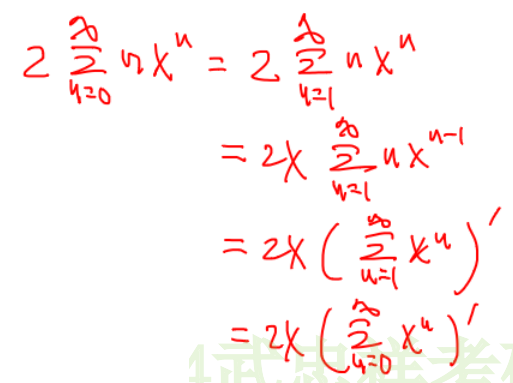 2 ∑_{n=0}^{∞} n x^n = 2 ∑_{n=1}^{∞} n x^n
= 2x ∑_{n=1}^{∞} n x^{n-1}
= 2x ( ∑_{n=1}^{∞} x^n )'
= 2x ( ∑_{n=0}^{∞} x^n )'
武忠祥考研